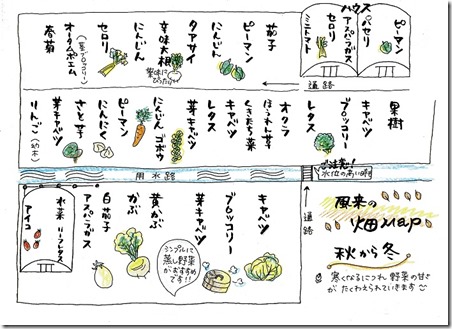 ハウス
ピーマン
パセリ
アスパラガス
セロリ
ミニトマト
茄子
ピーマン
にんじん
タアサイ
辛味大根
薬味にぴったり
にんじん
セロリ
オータムポエム
(茎ブロッコリー)
春菊
道路
果樹
キャベツ
ブロッコリー
レタス
オクラ
ほうれん草
くきたち菜
キャベツ
レタス
芽キャベツ
にんじん ゴボウ
ピーマン
にんにく
さと芋
芽キャベツ
りんご(幼木)
ご注意!
水位の高い時
用水路
道路
キャベツ
ブロッコリー
芽キャベツ
シンプルに
蒸し野菜
がおすすめ
です!!
黄かぶ
かぶ
白茄子
アスパラガス
水菜 リーフレタス
アイコ
風来の
畑map
秋から冬
寒くなるにつれ野菜の甘さ
がたくわえられていきます